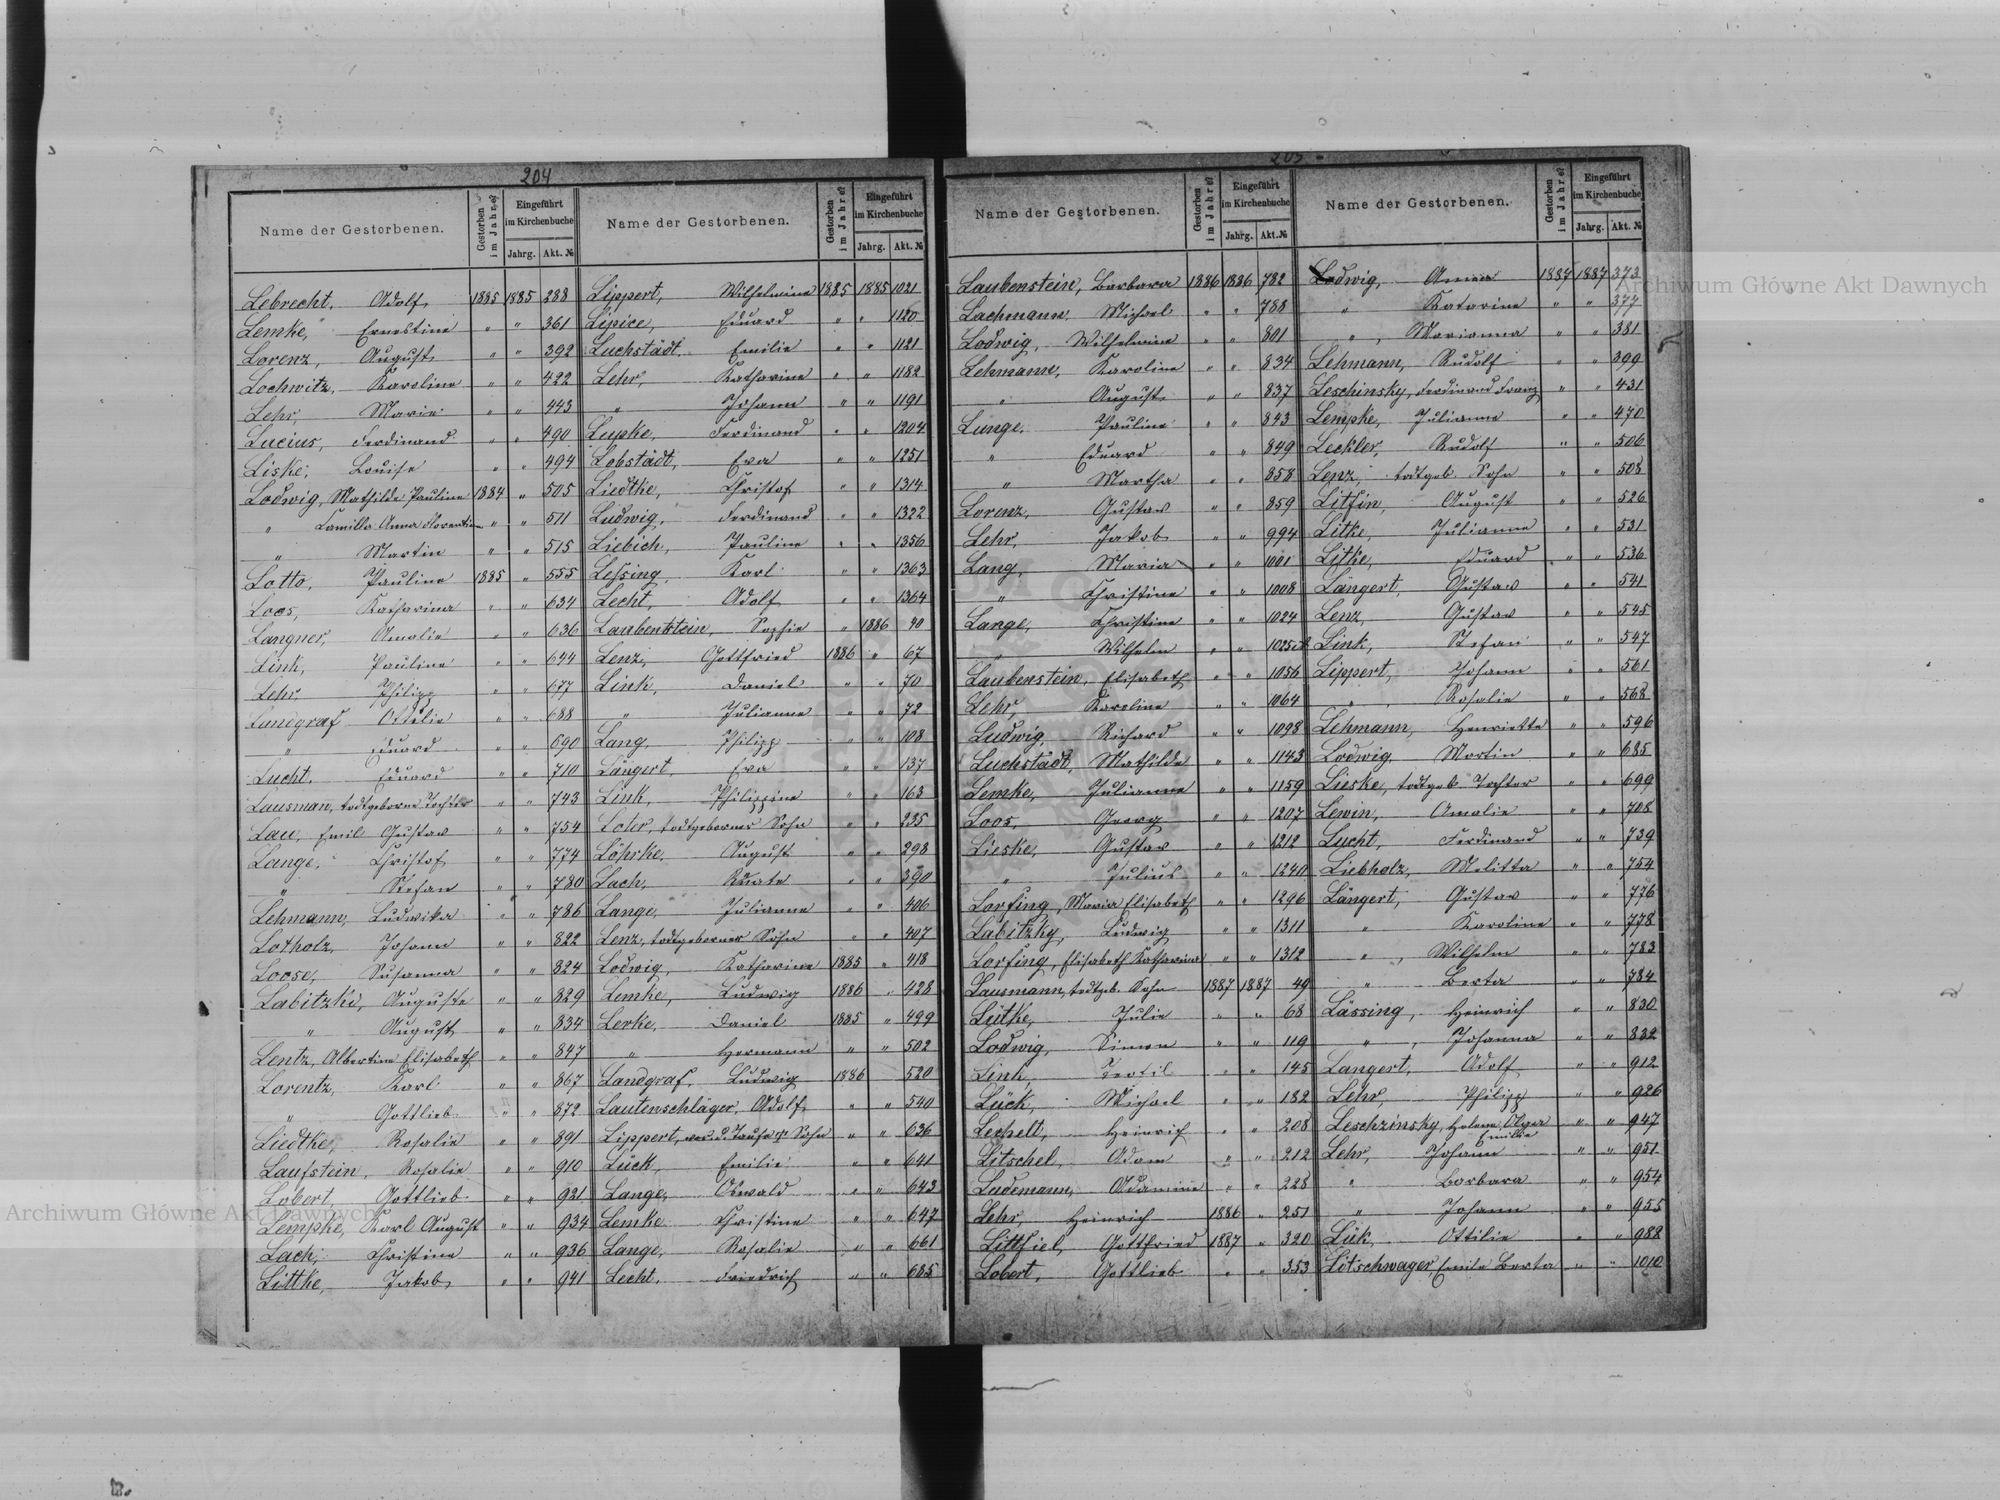 204
Name der Gestorbenen. Gestorben im Jahre Eingeführt im Kirchenbuche Jahrg. Akt. №
Lebrecht, Adolf 1885 1885 288
Lemke, Ernestine " " 361
Lorenz, August " " 392
Lochwitz, Karoline " " 422
Lehr, Marie " " 443
Lucius, Ferdinand " " 490
Liske, Louise " " 494
Lodwig, Mathilde Pauline 1884 " 505
" Camilla Anna Florentine " " 511
" Martin " " 515
Lotto, Pauline 1885 " 555
Loos, Katharina " " 634
Langner, Amalie " " 636
Link, Pauline " " 644
Lehr Philipp " " 677
Landgraf Ottilie " " 688
" Eduard " " 690
Lucht, Eduard " " 710
Lausman, todtgeborne Tochter " " 743
Lau, Emil Gustav " " 754
Lange, Christof " " 774
" Stefan " " 780
Lehmann, Ludwika " " 786
Lotholz, Johann " " 822
Loose, Susanna " " 824
Labitzki, Auguste " " 829
" August " " 834
Lentz, Albertine Elisabeth " " 847
Lorentz, Karl " " 867
" Gottlieb " " 872
Liedtke, Rosalie " " 891
Laufstein, Rosalie " " 910
Lobert, Gottlieb " " 921
Lempke, Karl August " " 934
Lach, Christine " " 936
Littke, Jakob " " 941
Name der Gestorbenen. Gestorben im Jahre Eingeführt im Kirchenbuche Jahrg. Akt. №
Lippert, Wilhelmine 1885 1885 1021
Lipice, Eduard " " 1120
Luchstädt, Emilie " " 1121
Lehr, Katharine " " 1182
" Johann " " 1191
Lupke, Ferdinand " " 1204
Lobstädt, Eva " " 1251
Liedtke, Christof " " 1314
Ludwig, Ferdinand " " 1322
Liebich, Pauline " " 1356
Lessing, Karl " " 1363
Lecht, Adolf " " 1364
Laubenstein, Sophie " 1886 40
Lenz, Gottfried 1886 " 67
Link, Daniel " " 70
" Julianne " " 72
Lang, Philipp " " 108
Längert, Eva " " 137
Link, Philippine " " 163
Loter, todtgeborner Sohn " " 235
Löhrke, August " " 298
Lach, Renate " " 390
Lange, Julianne " " 406
Lenz, todtgeborner Sohn " " 407
Lodwig, Katharine 1885 " 418
Lemke, Ludwig 1886 " 428
Lerke, Daniel 1885 " 499
" Hermann " " 502
Landgraf, Ludwig 1886 520
Lautenschläger, Adolf " " 540
Lippert, Sohn " " 636
Lück, Emilie " " 641
Lange, Oswald " " 643
Lemke Christine " " 647
Lange, Rosalie " " 661
Lecht, Friedrich " " 685
205
Name der Gestorbenen. Gestorben im Jahre Eingeführt im Kirchenbuche Jahrg. Akt. №
Laubenstein, Barbara 1886 1886 782
Lachmann, Michael " " 788
Lodwig, Wilhelmine " " 801
Lehmann, Karoline " " 834
" August " " 837
Lange, Pauline " " 843
" Eduard " " 849
" Martha " " 858
Lorenz, Gustav " " 859
Lehr, Jakob " " 994
Lang, Maria " " 1001
" Christine " " 1008
Lange, Christine " " 1024
" Wilhelm " " 1025
Laubenstein, Elisabeth " " 1056
Lehr, Karoline " " 1064
Ludwig, Richard " " 1098
Luchstädt, Mathilde " " 1143
Lemke, Julianne " " 1159
Loos, Georg " " 1207
Lieske, Gustav " " 1212
" Julius " " 1240
Lorfing, Maria Elisabeth " " 1296
Labitzky, Ludwig " " 1311
Lorfing, Elisabeth Katharina " " 1312
Lausmann, todtgeb. Sohn 1887 1887 49
Lütke, Julie " " 68
Lodwig, Simon " " 119
Link, Teofil " " 145
Lück, Michael " " 182
Lechelt, Heinrich " " 208
Litschel, Adam " " 212
Ludemann, Adamine " " 228
Lehr, Heinrich 1886 " 251
Littfiel, Gottfried 1887 " 320
Lobert, Gottlieb " " 353
Name der Gestorbenen. Gestorben im Jahre Eingeführt im Kirchenbuche Jahrg. Akt. №
Lodwig, Anna 1887 1887 373
" Katarine " " 377
" , Marianna " " 381
Lehmann, Rudolf " " 399
Leschinsky, Ferdinand Franz " " 431
Lempke, Julianne " " 470
Leckler, Rudolf " " 506
Lenz, todtgeb. Sohn " " 508
Litfin, August " " 526
Litke, Julianne " " 531
Litke, Eduard " " 536
Längert, Gustav " " 541
Lenz, Gustav " " 545
Link, Stefan " " 547
Lippert, Johann " " 561
" , Rosalie " " 568
Lehmann, Henriette " " 596
Lodwig, Martin " " 685
Lieske, todtgeb. Tochter " " 699
Lewin, Amalie " " 708
Lucht, Ferdinand " " 739
Liebholz, Melitta " " 754
Längert, Gustav " " 776
" Karoline " " 778
" , Wilhelm " " 783
" Berta " " 784
Lässing, Heinrich " " 830
" , Johanna " " 832
Langert, Adolf " " 912
Lehr, Philipp " " 926
Leschzinsky, Helene Olga Emilie " " 947
Lehr, Johann " " 951
" Barbara " " 954
" Johann " " 955
Lük, Ottilie " " 988
Lötschwager, Emilie Berta " " 1010
Archiwum Główne Akt Dawnych
Archiwum Główne Akt Dawnych